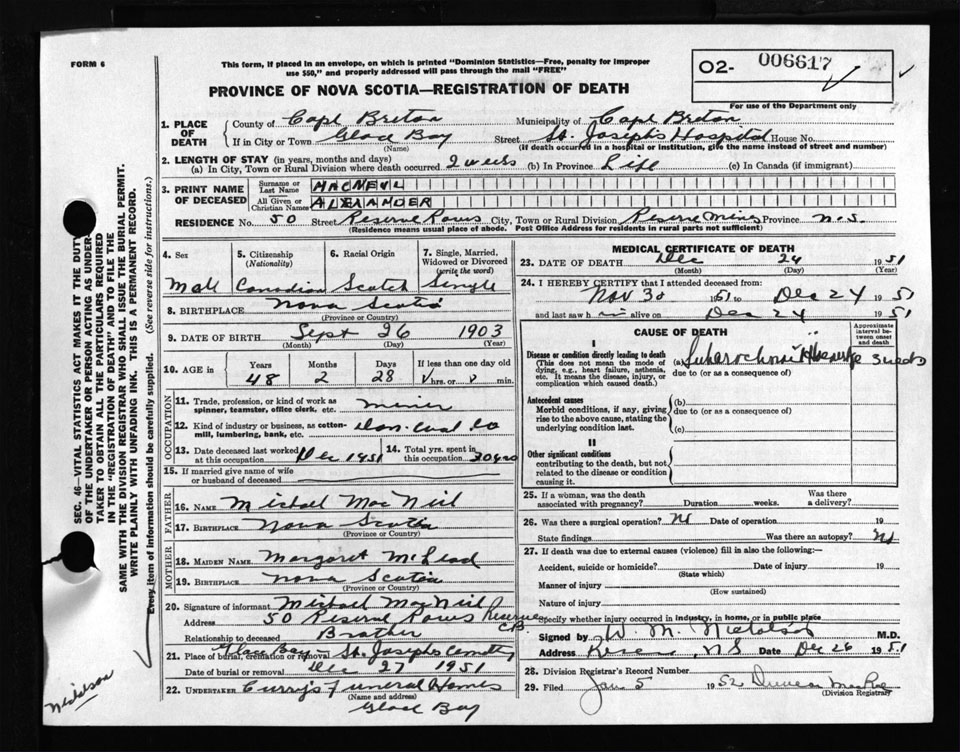 FORM 6
This form, if placed in an envelope, on which is printed "Dominion Statistics—Free, penalty for improper
use $50," and properly addressed will pass through the mail "FREE"
O2- 006617
For use of the Department only
PROVINCE OF NOVA SCOTIA—REGISTRATION OF DEATH
1. PLACE OF DEATH County of Cape Breton Municipality of Cape Breton
If in City or Town Glace Bay Street St. Joseph's Hospital House No.
(Name) (If death occurred in a hospital or institution, give the name instead of street and number)
2. LENGTH OF STAY (in years, months and days)
(a) In City, Town or Rural Division where death occurred 2 weeks (b) In Province Life (c) In Canada (if immigrant)
3. PRINT NAME OF DECEASED Surname or Last Name MACNEIL
All Given or Christian Names ALEXANDER
RESIDENCE No. 50 Street Reserve Rows City, Town or Rural Division Reserve Mines Province N.S.
(Residence means usual place of abode. Post Office Address for residents in rural parts not sufficient)
4. Sex 5. Citizenship (Nationality) 6. Racial Origin 7. Single, Married, Widowed or Divorced (write the word)
Male Canadian Scotch Single
8. BIRTHPLACE Nova Scotia
(Province or Country)
9. DATE OF BIRTH Sept 26 1903
(Month) (Day) (Year)
10. AGE in Years Months Days If less than one day old
48 2 28 hrs. or min.
OCCUPATION
11. Trade, profession, or kind of work as spinner, teamster, office clerk, etc. miner
12. Kind of industry or business, as cotton-mill, lumbering, bank, etc. Dom. Coal Co
13. Date deceased last worked at this occupation Dec 1951 14. Total yrs. spent in this occupation 30 yrs
15. If married give name of wife or husband of deceased
FATHER
16. NAME Michael MacNeil
17. BIRTHPLACE Nova Scotia
(Province or Country)
MOTHER
18. MAIDEN NAME Margaret McLeod
19. BIRTHPLACE Nova Scotia
(Province or Country)
20. Signature of informant Michael MacNeil
Address 50 Reserve Rows Reserve C.B.
Relationship to deceased Brother
21. Place of burial, cremation or removal Glace Bay - St. Josephs Cemetery
Date of burial or removal Dec 27 1951
22. UNDERTAKER Curry's Funeral Homes
(Name and address)
Glace Bay
MEDICAL CERTIFICATE OF DEATH
23. DATE OF DEATH Dec 24 1951
(Month) (Day) (Year)
24. I HEREBY CERTIFY that I attended deceased from:
Nov 30 1951 to Dec 24 1951
and last saw h im alive on Dec 24 1951
CAUSE OF DEATH
Approximate interval between onset and death
I
Disease or condition directly leading to death
(This does not mean the mode of dying, e.g., heart failure, asthenia, etc. It means the disease, injury, or complication which caused death.)
(a) 3 weeks
due to (or as a consequence of)
Antecedent causes
Morbid conditions, if any, giving rise to the above cause, stating the underlying condition last.
(b)
due to (or as a consequence of)
(c)
II
Other significant conditions
contributing to the death, but not related to the disease or condition causing it.
25. If a woman, was the death associated with pregnancy? Duration weeks. Was there a delivery?
26. Was there a surgical operation? No Date of operation 19
State findings Was there an autopsy? No
27. If death was due to external causes (violence) fill in also the following:—
Accident, suicide or homicide? Date of injury 19
(State which)
Manner of injury
(How sustained)
Nature of injury
Specify whether injury occurred in industry, in home, or in public place
Signed by W. M. Nicholson M.D.
Address Reserve, N.S Date Dec 26 1951
28. Division Registrar's Record Number
29. Filed Jan 5 1952 Duncan MacRae
(Division Registrar)
SEC. 46—VITAL STATISTICS ACT MAKES IT THE DUTY
OF THE UNDERTAKER OR PERSON ACTING AS UNDER-
TAKER TO OBTAIN ALL THE PARTICULARS REQUIRED
IN THE "REGISTRATION OF DEATH" AND TO FILE THE
SAME WITH THE DIVISION REGISTRAR WHO SHALL ISSUE THE BURIAL PERMIT.
WRITE PLAINLY WITH UNFADING INK. THIS IS A PERMANENT RECORD.
Every item of information should be carefully supplied. (See reverse side for instructions.)